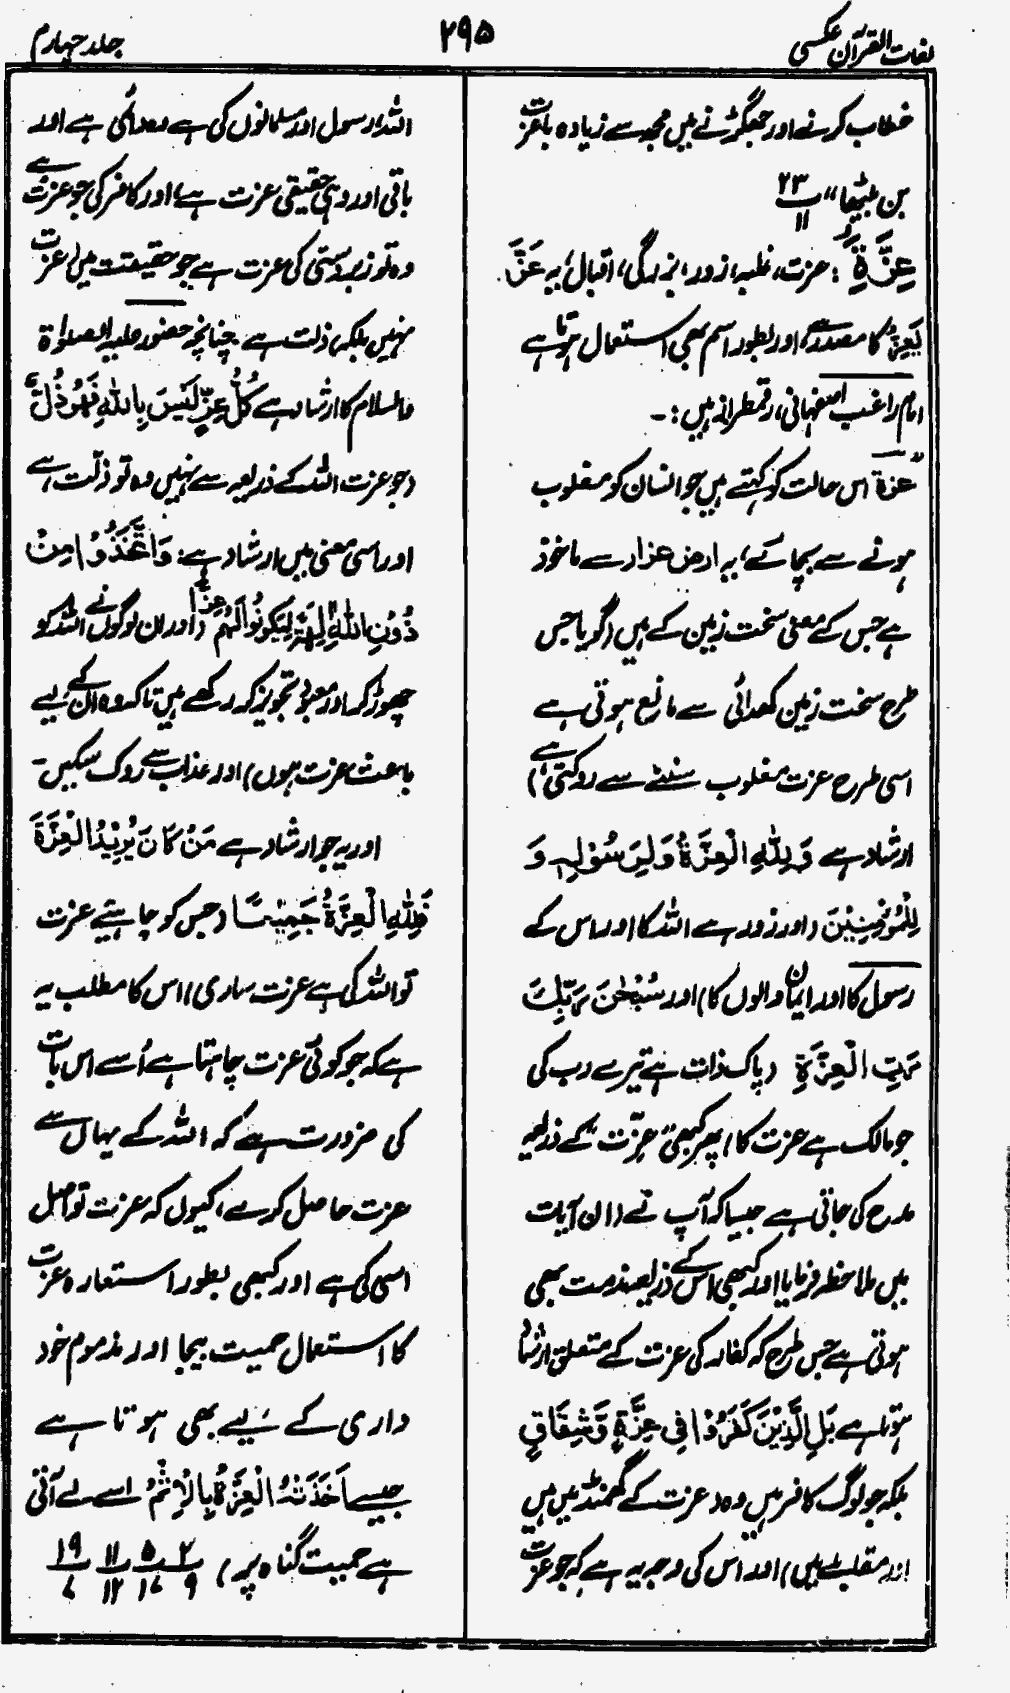 لغات القرآن عکسی
۲۹۵
جلد چہارم
خطاب کرنے اور جھگڑنے میں مجھ سے زیادہ باعزت
بن بیٹھا“ ۲۳ / ۱۱
عِزَّةٍ : عزت، غلبہ، زور، بزرگی، اقبال، یہ عَزَّ
یَعِزُّ کا مصدر ہے، اور بطور اسم بھی استعمال ہوتا ہے
امام راغب اصفہانی، رقمطراز ہیں :۔
”عزة اس حالت کو کہتے ہیں جو انسان کو مغلوب
ہونے سے بچائے، یہ ارض عزاز سے ماخوذ
ہے جس کے معنی سخت زمین کے ہیں (گویا جس
طرح سخت زمین کھدائی سے مانع ہوتی ہے
اسی طرح عزت مغلوب بننے سے روکتی ہے)
ارشاد ہے وَلِلّٰهِ الْعِزَّةُ وَلِرَسُوْلِهٖ وَ
لِلْمُؤْمِنِيْنَ (اور زور ہے اللہ کا اور اس کے
رسول کا اور ایمان والوں کا) اور سُبْحٰنَ رَبِّكَ
رَبِّ الْعِزَّةِ (پاک ذات ہے تیرے رب کی
جو مالک ہے عزت کا) پھر کبھی ”عزّت“ کے ذریعہ
مدح کی جاتی ہے جیسا کہ آپ نے (ان آیات
میں ملاحظہ فرمایا اور کبھی اس کے ذریعہ مذمت بھی
ہوتی ہے جس طرح کہ کفار کی عزت کے متعلق ارشاد
ہوتا ہے بَلِ الَّذِيْنَ كَفَرُوْا فِي عِزَّةٍ وَّشِقَاقٍ
بلکہ جو لوگ کافر ہیں وہ (عزت کے گھمنڈ میں ہیں
اور مقابلے میں) اور اس کی وجہ یہ ہے کہ جو عزت
اللہ، رسول اور مسلمانوں کی ہے وہ دائمی ہے اور
باقی اور وہی حقیقی عزت ہے، اور کافر کی جو عزت ہے
وہ تو زبردستی کی عزت ہے جو حقیقت میں عزت
نہیں بلکہ ذلت ہے۔ چنانچہ حضور علیہ الصلوٰة
والسلام کا ارشاد ہے كُلُّ عِزٍّ لَيْسَ بِاللّٰهِ فَهُوَ ذُلٌّ
(جو عزت اللہ کے ذریعہ سے نہیں وہ تو ذلّت ہے
اور اسی معنی میں ارشاد ہے: وَاتَّخَذُوْا مِنْ
دُوْنِ اللّٰهِ اٰلِهَةً لِّيَكُوْنُوْا لَهُمْ عِزًّا (اور ان لوگوں نے اللہ کو
چھوڑ کر اور معبود تجویز کر رکھے ہیں تاکہ وہ ان کے لیے
باعث عزت ہوں) اور عذاب سے روک سکیں۔
اور یہ جو ارشاد ہے مَنْ كَانَ يُرِيْدُ الْعِزَّةَ
فَلِلّٰهِ الْعِزَّةُ جَمِيْعًا (جس کو چاہیئے عزت
تو اللہ کی ہے عزت ساری) اس کا مطلب یہ
ہے کہ جو کوئی عزت چاہتا ہے اُسے اس بات
کی ضرورت ہے کہ اللہ کے یہاں سے
عزت حاصل کرے، کیوں کہ عزت تو اصل
اسی کی ہے اور کبھی بطور استعارہ عزت
کا استعمال حمیت بیجا اور مذموم خود
داری کے لیے بھی ہوتا ہے
جیسے اَخَذَتْهُ الْعِزَّةُ بِالْاِثْمِ اسے لے آئی
ہے حمیت گناہ پر) ۲ / ۹ ۵ / ۱۷ ۱۱ / ۱۲ ۱۹ / ۷